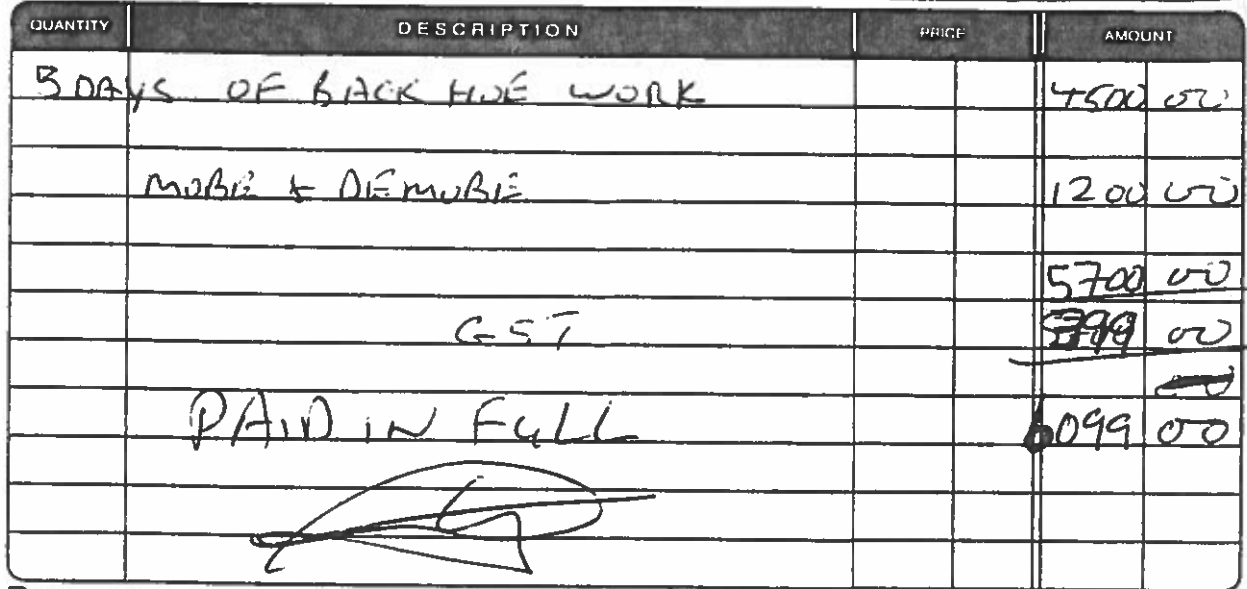 QUANTITY DESCRIPTION PRICE AMOUNT
5 DAYS OF BACK HOE WORK 4500 00
MOBE & DEMOBE 1200 00
5700 00
GST 399 00
PAID IN FULL 6099 00